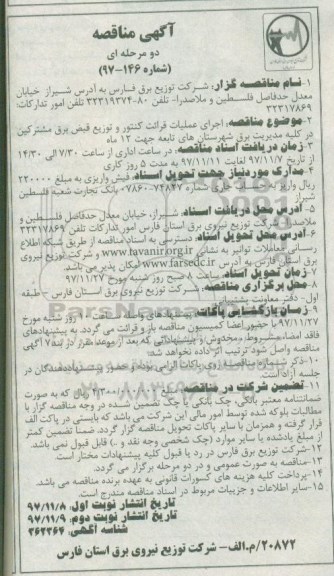 آگهی مناقصه
دو مرحله ای
(شماره ۱۴۶-۹۷)
۱-نام مناقصه گزار: شرکت توزیع برق فارس به آدرس شیراز خیابان
معدل حدفاصل فلسطین و ملاصدرا- تلفن ۸۰-۳۲۳۱۹۳۷۴ تلفن امور تدارکات:
۳۲۳۱۷۸۶۹
۲-موضوع مناقصه: اجرای عملیات قرائت کنتور و توزیع قبض برق مشترکین
در کلیه مدیریت برق شهرستان های تابعه جهت ۱۲ ماه
۳-زمان دریافت اسناد مناقصه: در ساعت اداری از ساعت ۷/۳۰ الی ۱۴/۳۰
از تاریخ ۹۷/۱۱/۷ لغایت ۹۷/۱۱/۱۱ به مدت ۵ روز کاری
۴-مدارک مورد نیاز جهت تحویل اسناد: فیش واریزی به مبلغ ۲۲۰۰۰۰
ریال واریز به جاری شماره بانک تجارت شعبه فلسطین
شیراز
۵-آدرس محل دریافت اسناد: شیراز، خیابان معدل حدفاصل فلسطین و
ملاصدرا- شرکت توزیع نیروی برق استان فارس امور تدارکات تلفن ۳۲۳۱۷۸۶۹
۶-آدرس محل تحویل اسناد: دسترسی به اسناد مناقصه از طریق شبکه اطلاع
رسانی معاملات توانیر به نشانی www.tavanir.org.ir و شرکت توزیع نیروی
برق فارس به آدرس www.farsedc.ir امکان پذیر می باشد.
۷-زمان تحویل اسناد: ساعت ۸ صبح روز شنبه مورخ ۹۷/۱۱/۲۷
۸-محل برگزاری مناقصه: شرکت توزیع نیروی برق استان فارس - طبقه
اول- دفتر معاونت پشتیبانی
۹-زمان بازگشایی پاکات: پیشنهادهای واصله مورخ
۹۷/۱۱/۲۷ با حضور اعضا کمیسیون مناقصه باز و قرائت می گردد. به پیشنهادهای
فاقد امضاء، مشروط، مخدوش و پیشنهاداتی که بعد از موعد مقرر در بند ۷ آگهی
مناقصه واصل شود ترتیب اثر داده نخواهد شد.
۱۰-ذکر شماره مناقصه روی پاکات الزامی بوده و حضور پیشنهاددهندگان در
جلسه آزاد است.
۱۱-تضمین شرکت در مناقصه: مبلغ ریال که به صورت
ضمانتنامه معتبر بانکی، چک بانکی یا چک تضمین شده در وجه مناقصه گزار یا
مطالبات بلوکه شده توسط امور مالی این شرکت می باشد که بایستی در پاکت الف
قرار گرفته و همزمان با سایر پاکات تحویل مناقصه گزار گردد. ضمنا تضمین کمتر
از مبلغ یادشده یا سایر موارد (چک شخصی وجه نقد و ..) قابل قبول نمی باشد.
۱۲-شرکت توزیع برق فارس در رد یا قبول کلیه پیشنهادات مختار است.
۱۳-مناقصه به صورت عمومی و در دو مرحله برگزار می گردد.
۱۴-پرداخت کلیه هزینه های کسورات قانونی به عهده برنده مناقصه می باشد.
۱۵-سایر اطلاعات و جزییات مربوط در اسناد مناقصه مندرج است.
تاریخ انتشار نوبت اول: ۹۷/۱۱/۸
تاریخ انتشار نوبت دوم: ۹۷/۱۱/۹
شناسه آگهی: ۳۶۲۳۶۷
۲۰۸۷۲/م.الف- شرکت توزیع نیروی برق استان فارس